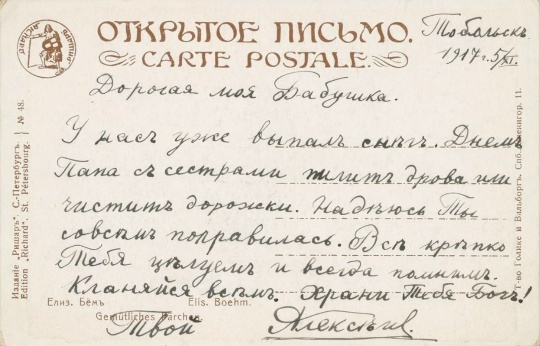 ОТКРЫТОЕ ПИСЬМО.
CARTE POSTALE.
Тобольскъ
1917 г. 5/XI.
Дорогая моя Бабушка.
У насъ уже выпалъ снѣгъ. Днемъ
Папа съ сестрами пилитъ дрова или
чиститъ дорожки. Надѣюсь Ты
совсѣмъ поправилась. Всѣ крѣпко
Тебя цѣлуемъ и всегда помнимъ.
Кланяйся всѣмъ. Храни Тебя Богъ!
Твой Алексѣй.
Елиз. Бемъ
Elis. Boehm.
Gemütliches Pärchen.
Изданіе „Ришаръ“. С.-Петербургъ.
Edition „Richard“. St. Pétersbourg.
№ 48.
Т-во Голике и Вильборгъ. Спб. Звенигор. 11.